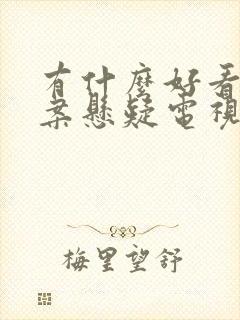 有什麼好看
案懸疑電視
梅里望舒